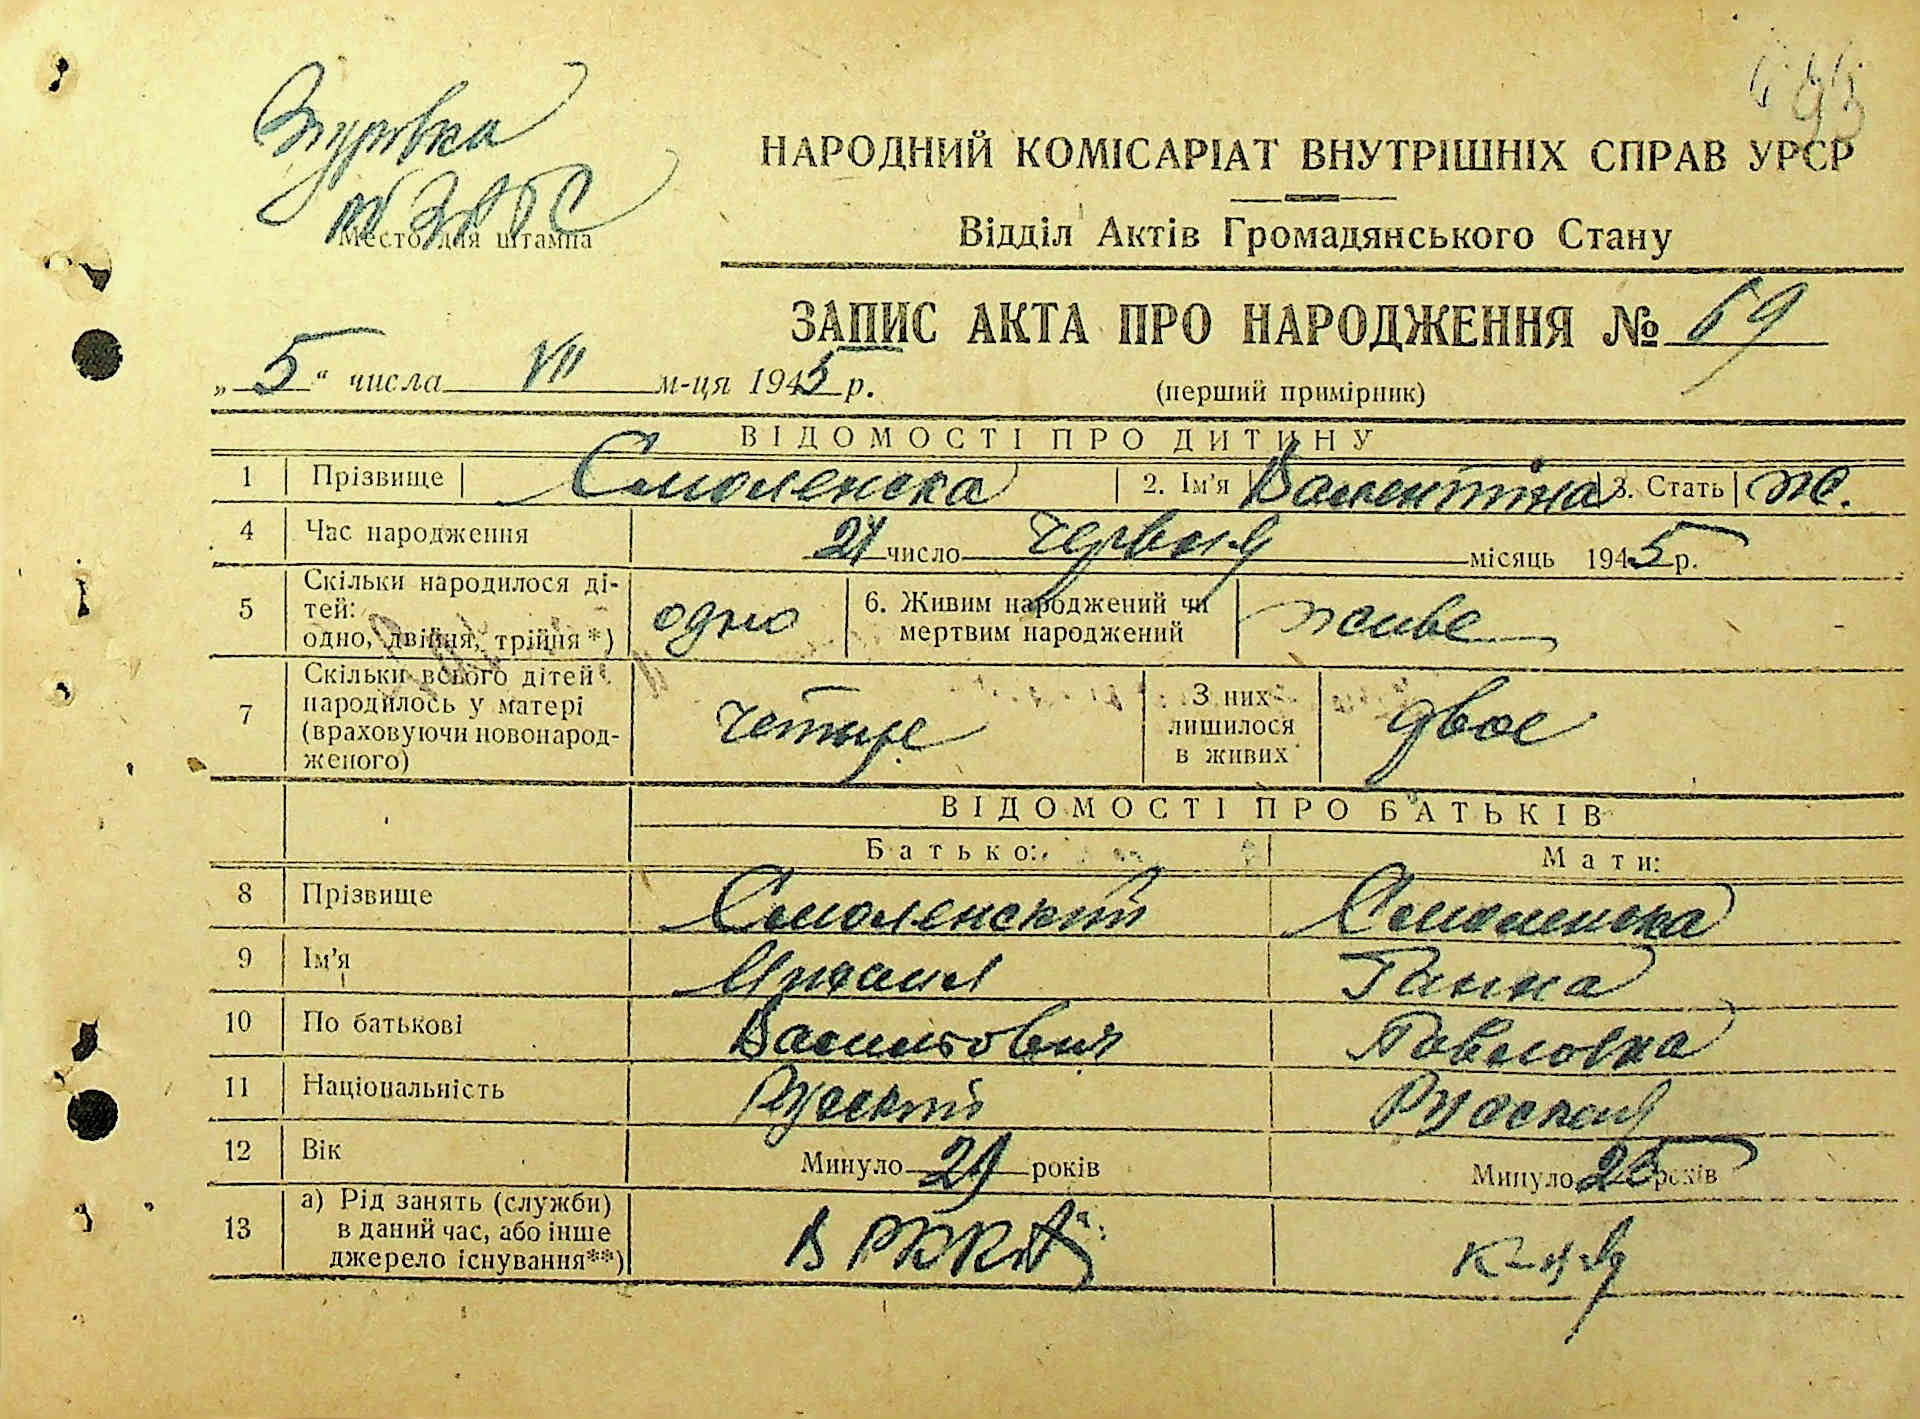 Згурівка
НАРОДНИЙ КОМІСАРІАТ ВНУТРІШНІХ СПРАВ УРСР
ЗАГС
Место для штампа
Відділ Актів Громадянського Стану
ЗАПИС АКТА ПРО НАРОДЖЕННЯ № 69
„5“ числа VII м-ця 1945 р.
(перший примірник)
ВІДОМОСТІ ПРО ДИТИНУ
1 Прізвище Смоленска 2. Ім'я Валентіна 3. Стать ж.
4 Час народження 21 число червня місяць 1945 р.
5 Скільки народилося ді-
тей:
одно, двійня, трійня *) одно 6. Живим народжений чи
мертвим народжений живе
7 Скільки всього дітей
народилось у матері
(враховуючи новонарод-
женого) четире З них
лишилося
в живих двое
ВІДОМОСТІ ПРО БАТЬКІВ
Батько: Мати:
8 Прізвище Смоленский Смоленска
9 Ім'я Михаил Ганна
10 По батькові Павловна
11 Національність Руский Руская
12 Вік Минуло 29 років Минуло 25 років
13 а) Рід занять (служби)
в даний час, або інше
джерело існування**) В РККА к-ця